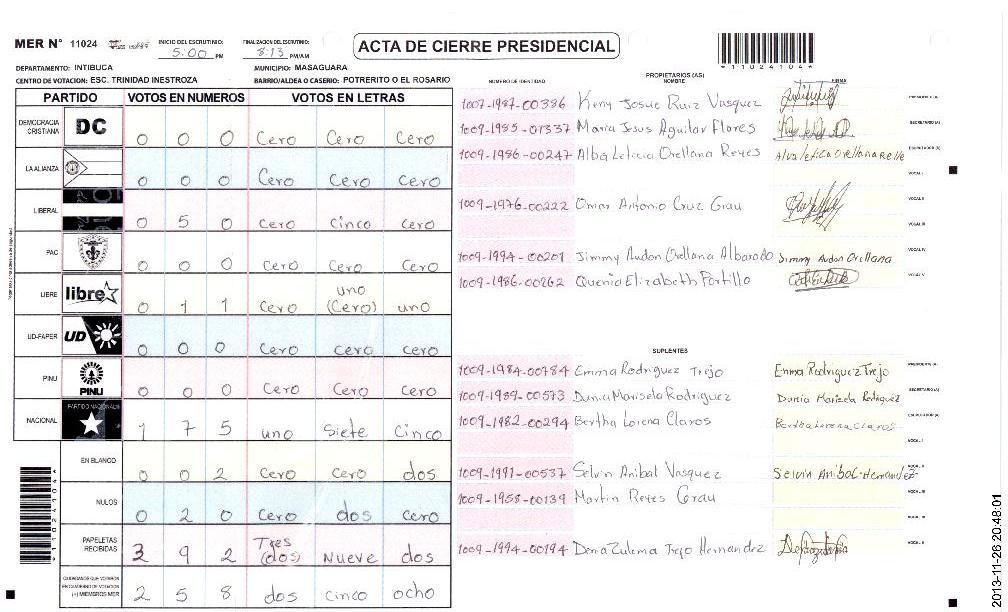 MER N° 11024
INICIO DEL ESCRUTINIO: 5:00 PM
FINALIZACION DEL ESCRUTINIO: 8:13 PM/AM
ACTA DE CIERRE PRESIDENCIAL
11024104
DEPARTAMENTO: INTIBUCA
MUNICIPIO: MASAGUARA
CENTRO DE VOTACION: ESC. TRINIDAD INESTROZA
BARRIO/ALDEA O CASERIO: POTRERITO O EL ROSARIO
PARTIDO VOTOS EN NUMEROS VOTOS EN LETRAS
DEMOCRACIA CRISTIANA DC 0 0 0 Cero Cero Cero
LA ALIANZA 0 0 0 Cero Cero Cero
LIBERAL 0 5 0 Cero Cinco Cero
PAC 0 0 0 Cero Cero Cero
LIBRE libre 0 1 1 Cero uno (Cero) uno
UD-FAPER UD 0 0 0 Cero Cero Cero
PINU PINU 0 0 0 Cero Cero Cero
NACIONAL PARTIDO NACIONAL 1 7 5 uno Siete Cinco
EN BLANCO 0 0 2 Cero Cero dos
NULOS 0 2 0 Cero dos Cero
PAPELETAS RECIBIDAS 3 9 2 Tres (dos) Nueve dos
CIUDADANOS QUE VOTARON EN CUADERNO DE VOTACION (+) MIEMBROS MER 2 5 8 dos cinco ocho
11024104
PROPIETARIOS (AS)
NUMERO DE IDENTIDAD NOMBRE FIRMA
1007-1987-00386 Keny Josue Ruiz Vasquez PRESIDENTE (A)
1009-1985-01337 Maria Jesus Aguilar Flores SECRETARIO (A)
1009-1986-00247 Alba Leticia Orellana Reyes ESCRUTADOR (A)
VOCAL I
1009-1976-00222 Omar Antonio Cruz Grau VOCAL II
VOCAL III
1009-1994-00201 Jimmy Audon Orellana Albarado Jimmy Audon Orellana VOCAL IV
1009-1986-00262 Quenia Elizabeth Portillo VOCAL V
SUPLENTES
1009-1984-00784 Emma Rodriguez Trejo Emma Rodriguez Trejo PRESIDENTE (A)
1009-1989-00573 Dunia Marisela Rodriguez Dunia Marizela Rodriguez SECRETARIO (A)
1009-1982-00294 Bertha Lorena Claros Bertha Lorena Claros ESCRUTADOR (A)
VOCAL I
1009-1991-00537 Selvin Anibal Vasquez Selvin Anibal Hernandez
1009-1958-00139 Martin Reyes Grau VOCAL III
1009-1994-00194 Denia Zulema Trejo Hernandez
2013-11-26 20:48:01